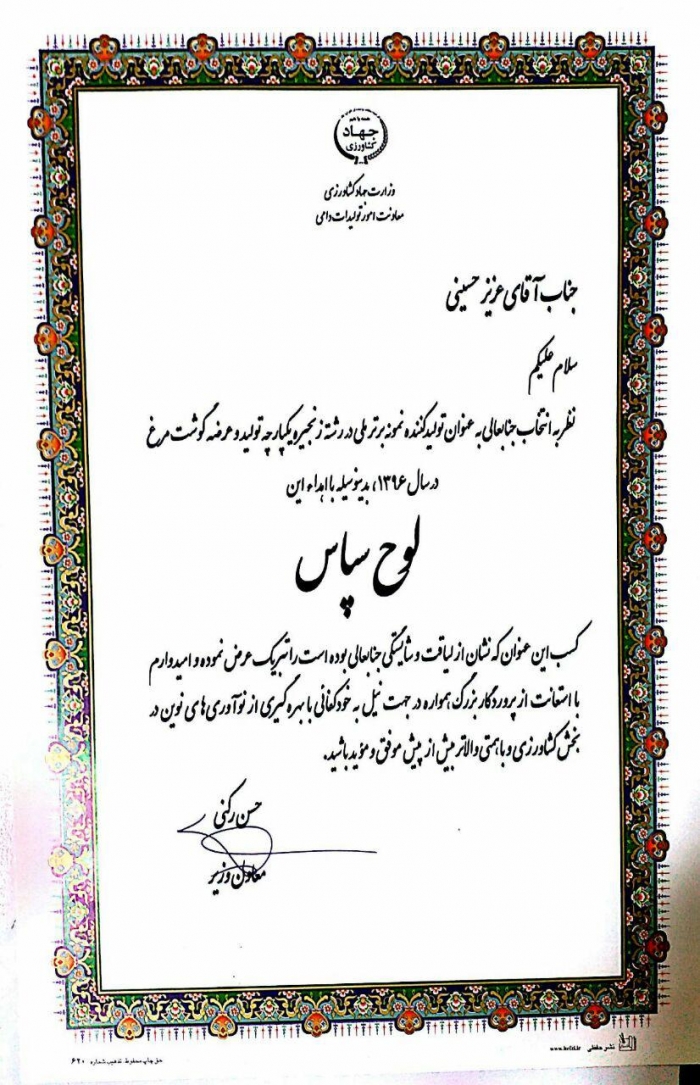 همه با هم
جهاد
کشاورزی
وزارت جهاد کشاورزی
معاونت امور تولیدات دامی
جناب آقای عزیز حسینی
سلام علیکم
نظر به انتخاب جنابعالی به عنوان تولیدکننده نمونه برتر ملی در رشته زنجیره یکپارچه تولید و عرضه گوشت مرغ
در سال ۱۳۹۶، بدینوسیله با اهداء این
لوح سپاس
کسب این عنوان که نشان از لیاقت و شایستگی جنابعالی بوده است را تبریک عرض نموده و امیدوارم
با استعانت از پروردگار بزرگ همواره در جهت نیل به خودکفائی با بهره گیری از نوآوری های نوین در
بخش کشاورزی و با همتی والاتر بیش از پیش موفق و مؤید باشید.
حسن رکنی
معاون وزیر
نشر حفظی
حق چاپ محفوظ. تذهیب شماره ۶۲۰